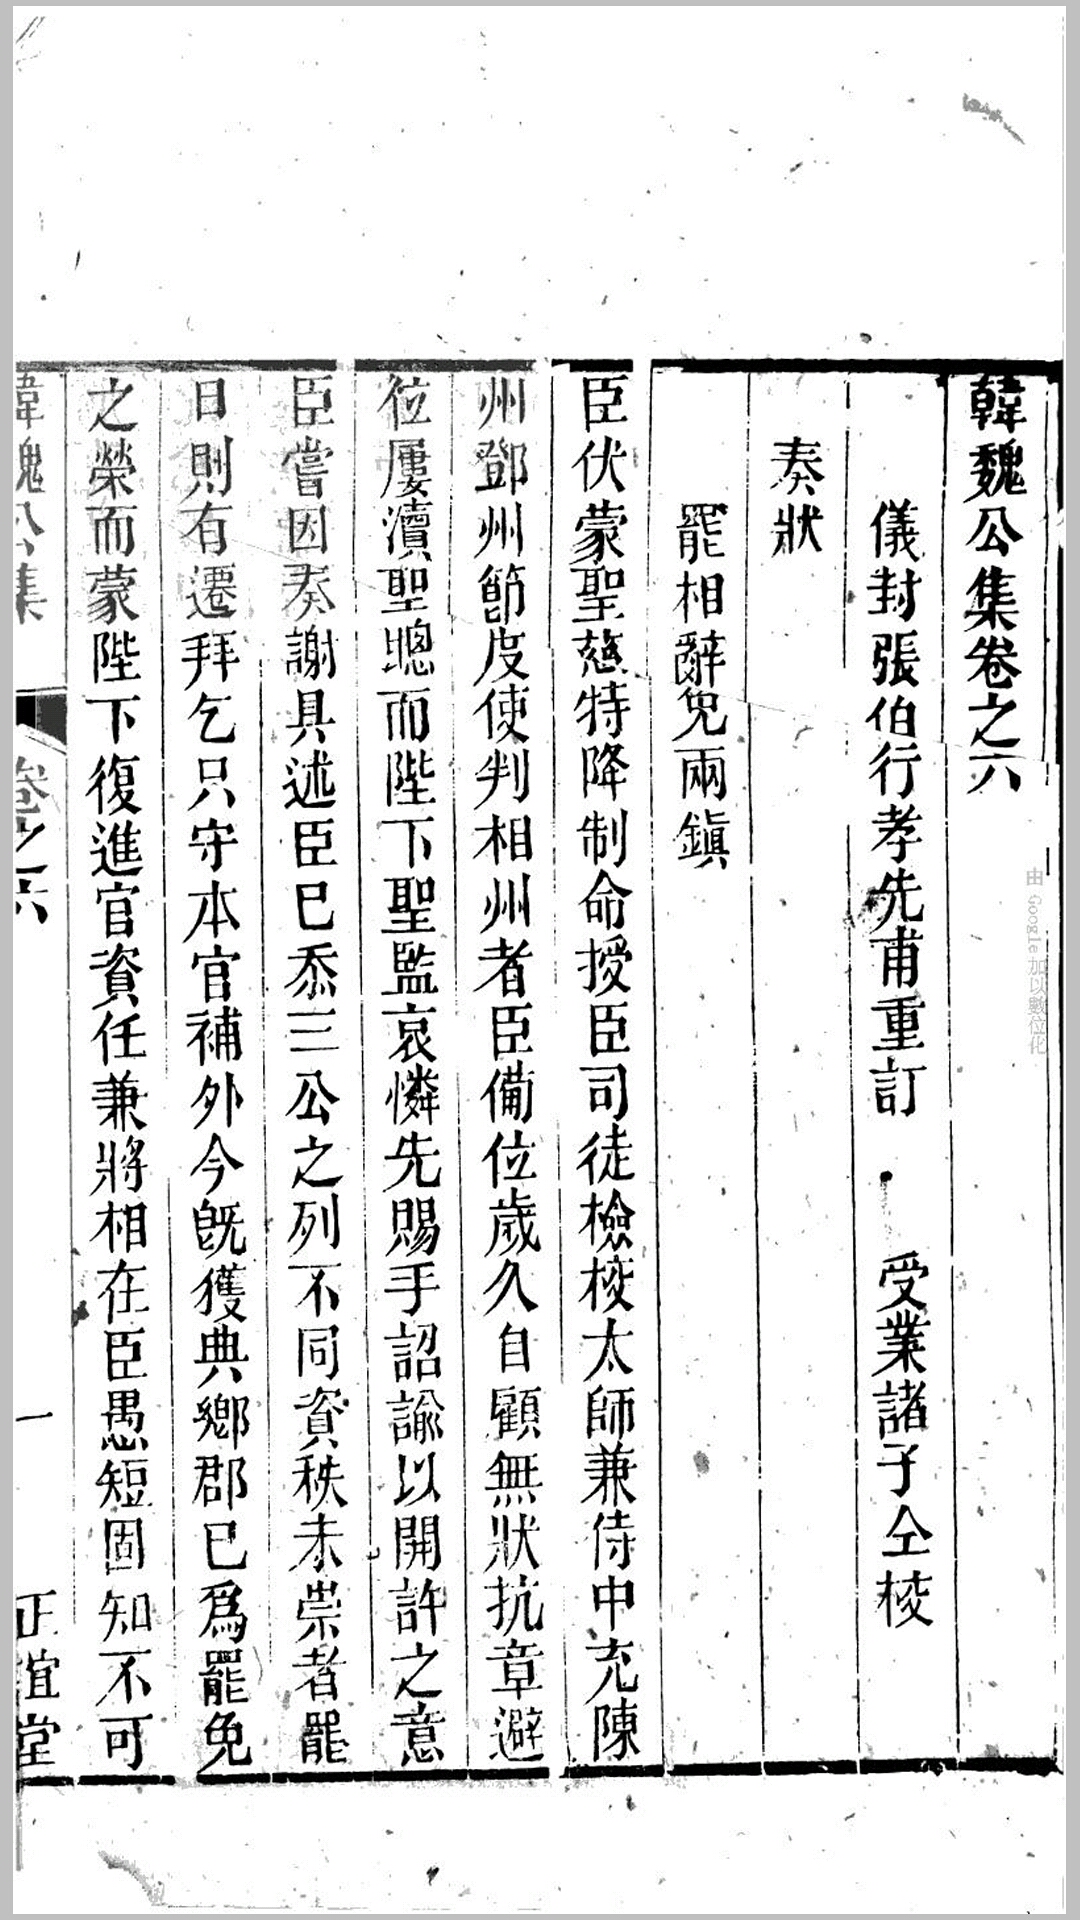 韓魏公集卷之六
儀封張伯行孝先甫重訂　受業諸子仝校
奏狀
罷相辭免兩鎮
臣伏蒙聖慈特降制命授臣司徒檢校太師兼侍中充陳
州鄧州節度使判相州者臣備位歲久自顧無狀抗章避
位屢瀆聖聰而陛下聖監哀憐先賜手詔諭以開許之意
臣嘗因奏謝具述臣已忝三公之列不同資秩未崇者罷
日則有遷拜乞只守本官補外今旣獲典鄕郡已爲罷免
之榮而蒙陛下復進官資任兼將相在臣愚短固知不可
韓魏公集　卷之六　一　正誼堂
由 Google 加以數位化